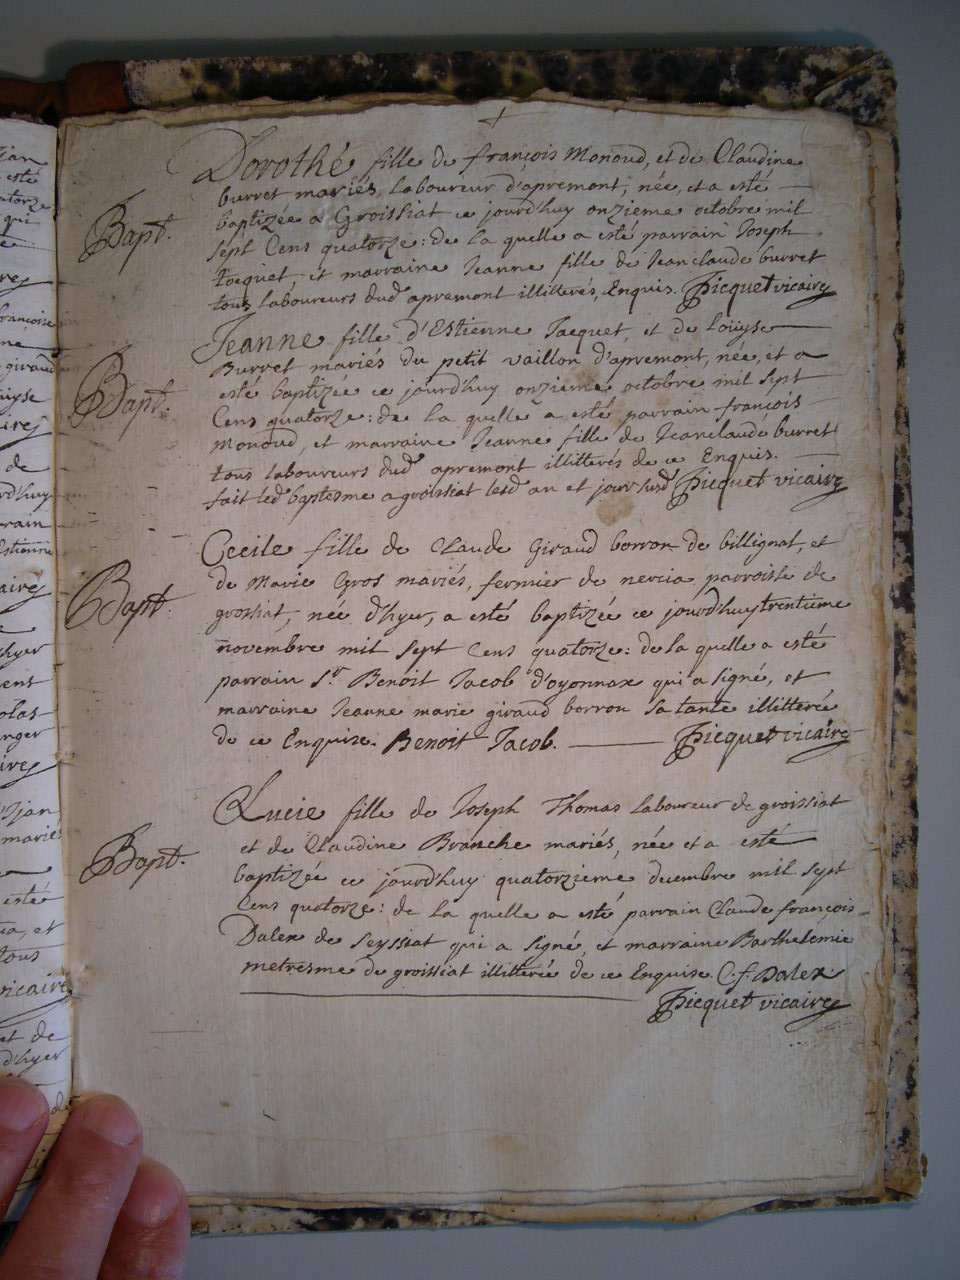 Dorothé, fille de françois Monoud, et de Claudine
burret mariés, laboureur d'apremont, née, et a esté
Bapt.
baptizée a Groissiat ce jourd'huy onzieme octobre mil
sept Cens quatorze: de la quelle a esté parrain Joseph
tocquet, et marraine Jeanne fille de Jeanclaude burret
tous laboureurs dud apremont illitterés, Enquis. Picquet vicaire
Jeanne fille d'Estienne Jacquet, et de Loüyse
Burret mariés du petit vaillon d'apremont, née, et a
Bapt.
esté baptizée ce jourd'huy onzieme octobre mil sept
Cens quatorze: de la quelle a esté parrain françois
Monoud, et marraine Jeanne fille de Jeanclaude burret
tous laboureurs dud apremont illitterés de ce Enquis.
fait led baptesme a groissiat lesd an et jour susd Picquet vicaire
Cecile fille de Claude Giraud borron de billignat, et
de Marie Gros mariés, fermier de nercia parroisse de
Bapt.
grossiat, née d'hyer, a esté baptizée ce jourd'huy trentieme
novembre mil sept Cens quatorze: de la quelle a esté
parrain Sr. Benoit Jacob d'oyonnax qui a signé, et
marraine Jeanne marie giraud borron sa tante illitterée
de ce Enquise. Benoit Jacob. Picquet vicaire
Lucie fille de Joseph Thomas laboureur de groissiat
et de Claudine Branche mariés, née et a esté
Bapt.
baptizée ce jourd'huy quatorzieme decembre mil sept
Cens quatorze: de la quelle a esté parrain Claude françois
Dalex de Seyssiat qui a signé, et marraine Barthelemie
metresme de groissiat illitterée de ce Enquise. C. f. Dalex
Picquet vicaire